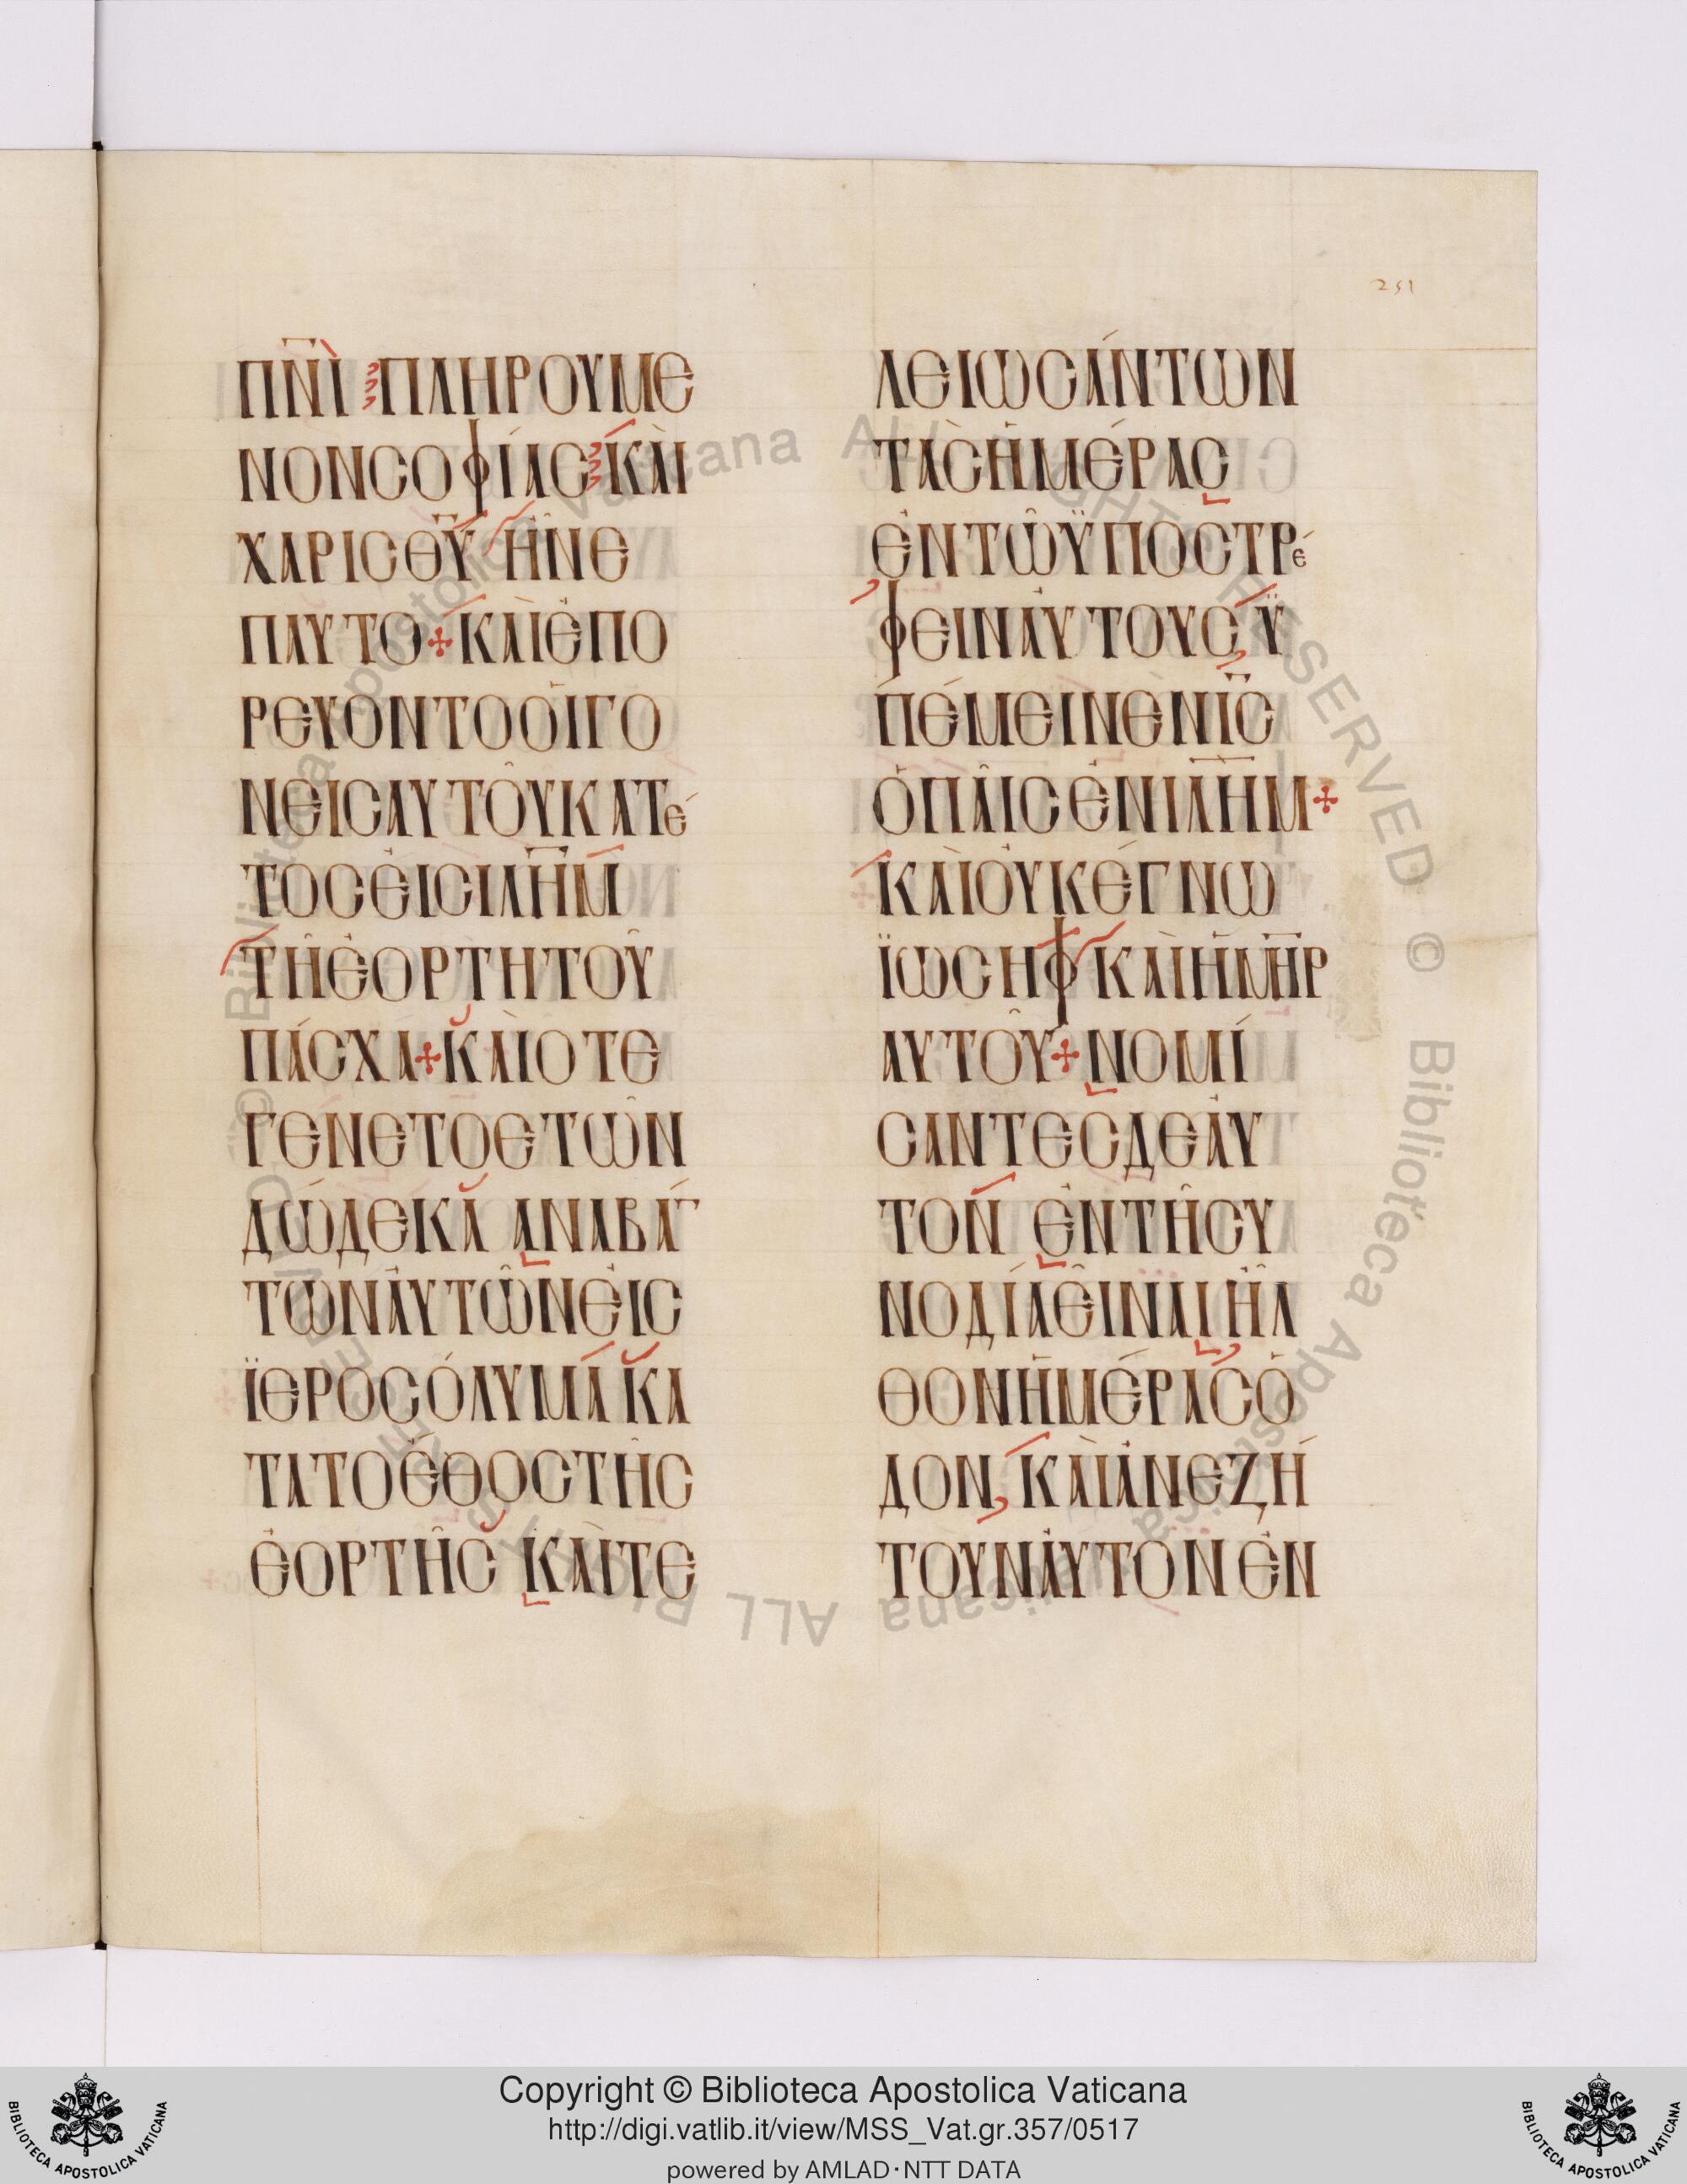 251
ΠΝΙ ΠΛΗΡΟΥΜΕ
ΝΟΝϹΟΦΊΑϹ ΚᾺΙ
ΧΑΡΙϹΘΥ ΗΝΕ
ΠΑΥΤΟ+ΚΑῚΕΠΟ
ΡΕΥΟΝΤΟΟΙΓΟ
ΝΕΙϹΑΥΤΟΥΚΑΤΕ
ΤΟϹΕΙϹΙΛΗΜ
ΤΗΕΟΡΤΗΤΟΥ
ΠΆϹΧΑ+ΚΑῚΟΤΕ
ΓΕΝΕΤΟΕΤΩΝ
ΔΏΔΕΚΑ ΑΝΑΒΑ
ΤΩΝΑΥΤΩΝΕΙϹ
ΪΕΡΟϹΌΛΥΜΑ ΚΑ
ΤΑΤΟΈΘΟϹΤΗϹ
ΕΟΡΤΗϹ ΚΑῚΤΕ
ΛΕΙΩϹΆΝΤΩΝ
ΤᾺϹΗΜΈΡΑϹ
ΕΝΤΩΫΠΟϹΤΡΈ
ΦΕΙΝΑΥΤΟΥϹ Ϋ
ΠΈΜΕΙΝΕΝΙϹ
ΟΠΑΙϹΕΝΙΛΗΜ+
ΚΑῚΟΥΚΈΓΝΩ
ΪΩϹΗΦ ΚΑῚΗΜΗΡ
ΑΥΤΟΥ+ΝΟΜΊ
ϹΑΝΤΕϹΔΕΑΥ
ΤΟΝ ΕΝΤΗϹΥ
ΝΟΔΊΑΕΙΝΑΙ ΗΛ
ΘΟΝΗΜΈΡΑϹΟ
ΔΟΝ, ΚΑῚΑΝΕΖΉ
ΤΟΥΝΑΥΤΟΝ ΕΝ
© Biblioteca Apostolica Vaticana ALL RIGHTS RESERVED © Biblioteca Apostolica Vaticana ALL RIGHTS RESERVED
Copyright © Biblioteca Apostolica Vaticana
http://digi.vatlib.it/view/MSS_Vat.gr.357/0517
powered by AMLAD·NTT DATA
BIBLIOTECA APOSTOLICA VATICANA
BIBLIOTECA APOSTOLICA VATICANA